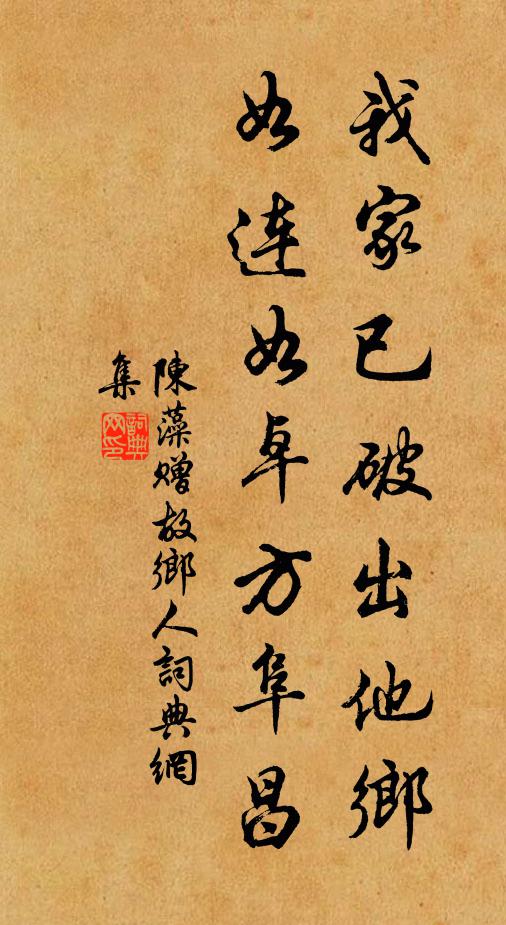 我家已破出他鄉
如連如卓方阜昌
陳藻贈故鄉人詞典網
集
詞典網印